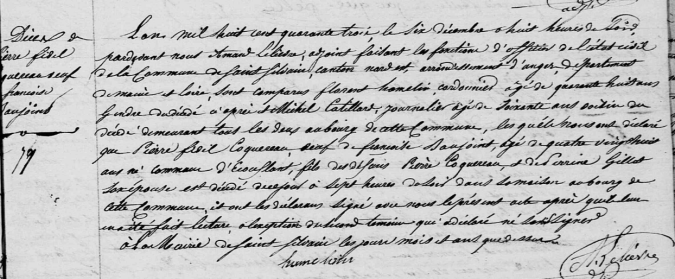 Décès de
Pierre fidel
Coquereau veuf
francoise
Saujoint
79
L'an mil huit cent quarante trois, le six décembre à huit heures du soir
pardevant nous Armand Lelièvre, adjoint faisant les fonction d'officier de l'état civil
de la Commune de Saint Silvain, canton nord est, arrondissement d'anger, département
de maine et loire, sont comparus florent hamelin cordonnier agé de quarante huit ans
Gendre du décédé et après Michel Catillard, journalier agé de soixante ans voisin du
décédé demeurant tous les deux au bourg de cette Commune, les quels nous ont déclaré
que Pierre fidil Coquereau veuf de françoise Saujoint, agé de quatre vingt huit
ans né Commune d'Ecouflant, fils des défunts Pierre Coquereau, et de Perrine Gillet
son épouse est décédé ce jour à sept heures du soir dans sa maison au bourg de
cette Commune, et ont les déclarans signé avec nous le présent acte après qu'il leur
en a été fait lecture, à l'exception du second temoin qui a déclaré ne savoir signer
à La Mairie de Saint Silvain les jours mois et ans que dessus
hamelin
A. Lelièvre